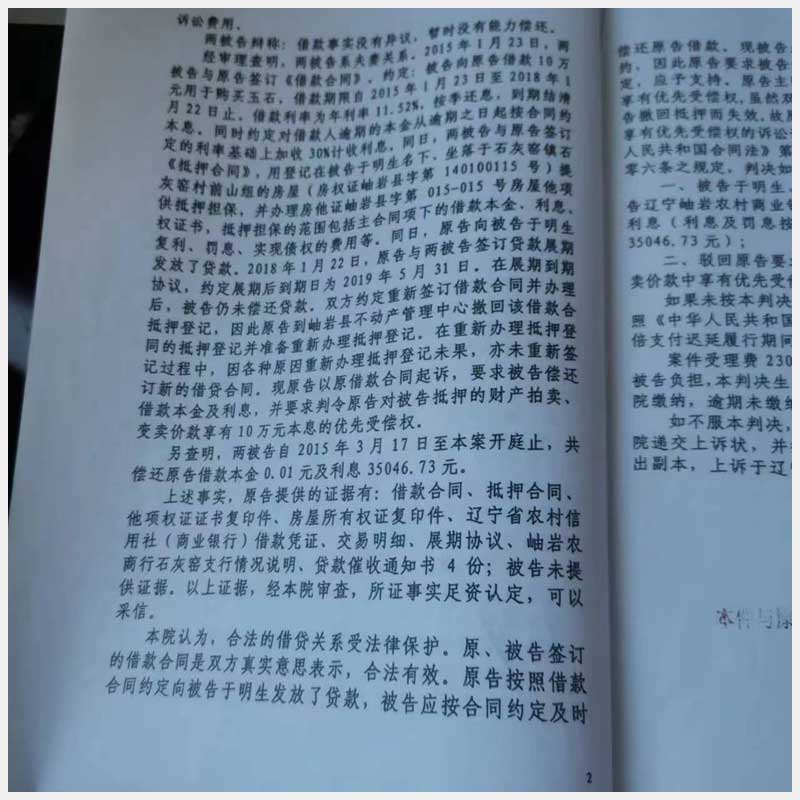 诉讼费用。
两被告辩称：借款事实没有异议，暂时没有能力偿还。
经审理查明，两被告系夫妻关系。2015年1月23日，两
被告与原告签订《借款合同》，约定：被告向原告借款10万
元用于购买玉石，借款期限自2015年1月23日至2018年1
月22日止，借款利率为年利率11.52%，按季还息，到期结清
本息。同时约定对借款人逾期的本金从逾期之日起按合同约
定的利率基础上加收30%计收利息。同日，两被告与原告签订
《抵押合同》，用登记在被告于明生名下、坐落于石灰窑镇石
灰窑村前山组的房屋（房权证岫岩县字第140100115号）提
供抵押担保，并办理房他证岫岩县字第015-015号房屋他项
权证书，抵押担保的范围包括主合同项下的借款本金、利息、
复利、罚息、实现债权的费用等。同日，原告向被告于明生
发放了贷款。2018年1月22日，原告与两被告签订贷款展期
协议，约定展期后到期日为2019年5月31日。在展期到期
后，被告仍未偿还贷款。双方约定重新签订借款合同并办理
抵押登记，因此原告到岫岩县不动产管理中心撤回该借款合
同的抵押登记并准备重新办理抵押登记。在重新办理抵押登
记过程中，因各种原因重新办理抵押登记未果，亦未重新签
订新的借贷合同。现原告以原借款合同起诉，要求被告偿还
借款本金及利息，并要求判令原告对被告抵押的财产拍卖、
变卖价款享有10万元本息的优先受偿权。
另查明，两被告自2015年3月17日至本案开庭止，共
偿还原告借款本金0.01元及利息35046.73元。
上述事实，原告提供的证据有：借款合同、抵押合同、
他项权证证书复印件、房屋所有权证复印件、辽宁省农村信
用社（商业银行）借款凭证、交易明细、展期协议、岫岩农
商行石灰窑支行情况说明、贷款催收通知书4份；被告未提
供证据。以上证据，经本院审查，所证事实足资认定，可以
采信。
本院认为，合法的借贷关系受法律保护。原、被告签订
的借款合同是双方真实意思表示，合法有效。原告按照借款
合同约定向被告于明生发放了贷款，被告应按合同约定及时
2
偿还原告借款。现被告
约，因此原告要求被告
定，应予支持。原告主
享有优先受偿权，虽然双
告撤回抵押而失效，故原
享有优先受偿权的诉讼
人民共和国合同法》第
零六条之规定，判决如
一、被告于明生、
告辽宁岫岩农村商业银
利息（利息及罚息按
35046.73元）；
二、驳回原告要求
卖价款中享有优先受偿
如果未按本判决
照《中华人民共和国
倍支付迟延履行期间
案件受理费230
被告负担，本判决生
院缴纳，逾期未缴纳
如不服本判决，
院递交上诉状，并
出副本，上诉于辽宁
本件与原